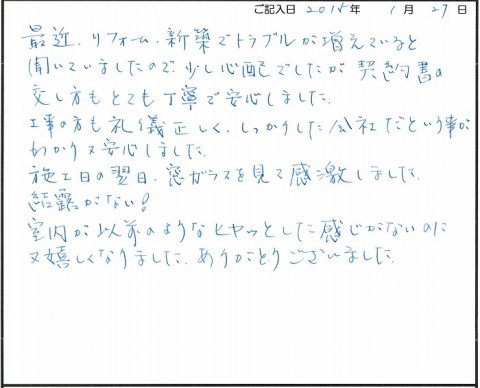 ご記入日 2015年 1月 27日
最近、リフォーム、新築でトラブルが増えていると
聞いていましたので、少し心配でしたが契約書の
交し方もとても丁寧で安心しました。
工事の方も礼儀正しく、しっかりした会社だという事が
わかり又安心しました。
施工日の翌日、窓ガラスを見て感激しました。
結露がない!
室内が以前のようなヒヤッとした感じがないのに
又嬉しくなりました。ありがとうございました。